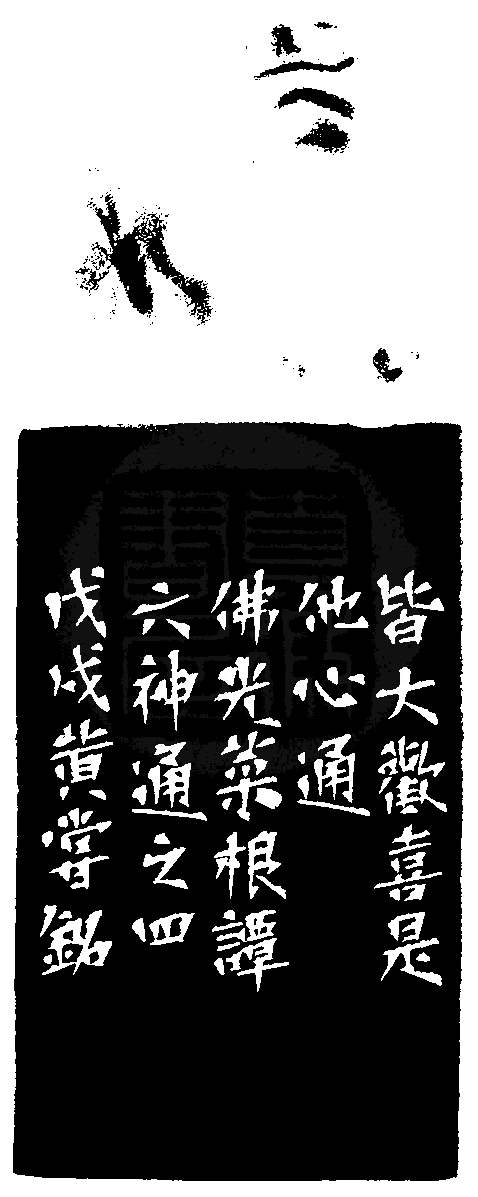 皆大歡喜是
他心通
佛光菜根譚
六神通之四
戊戌黄嘗銘